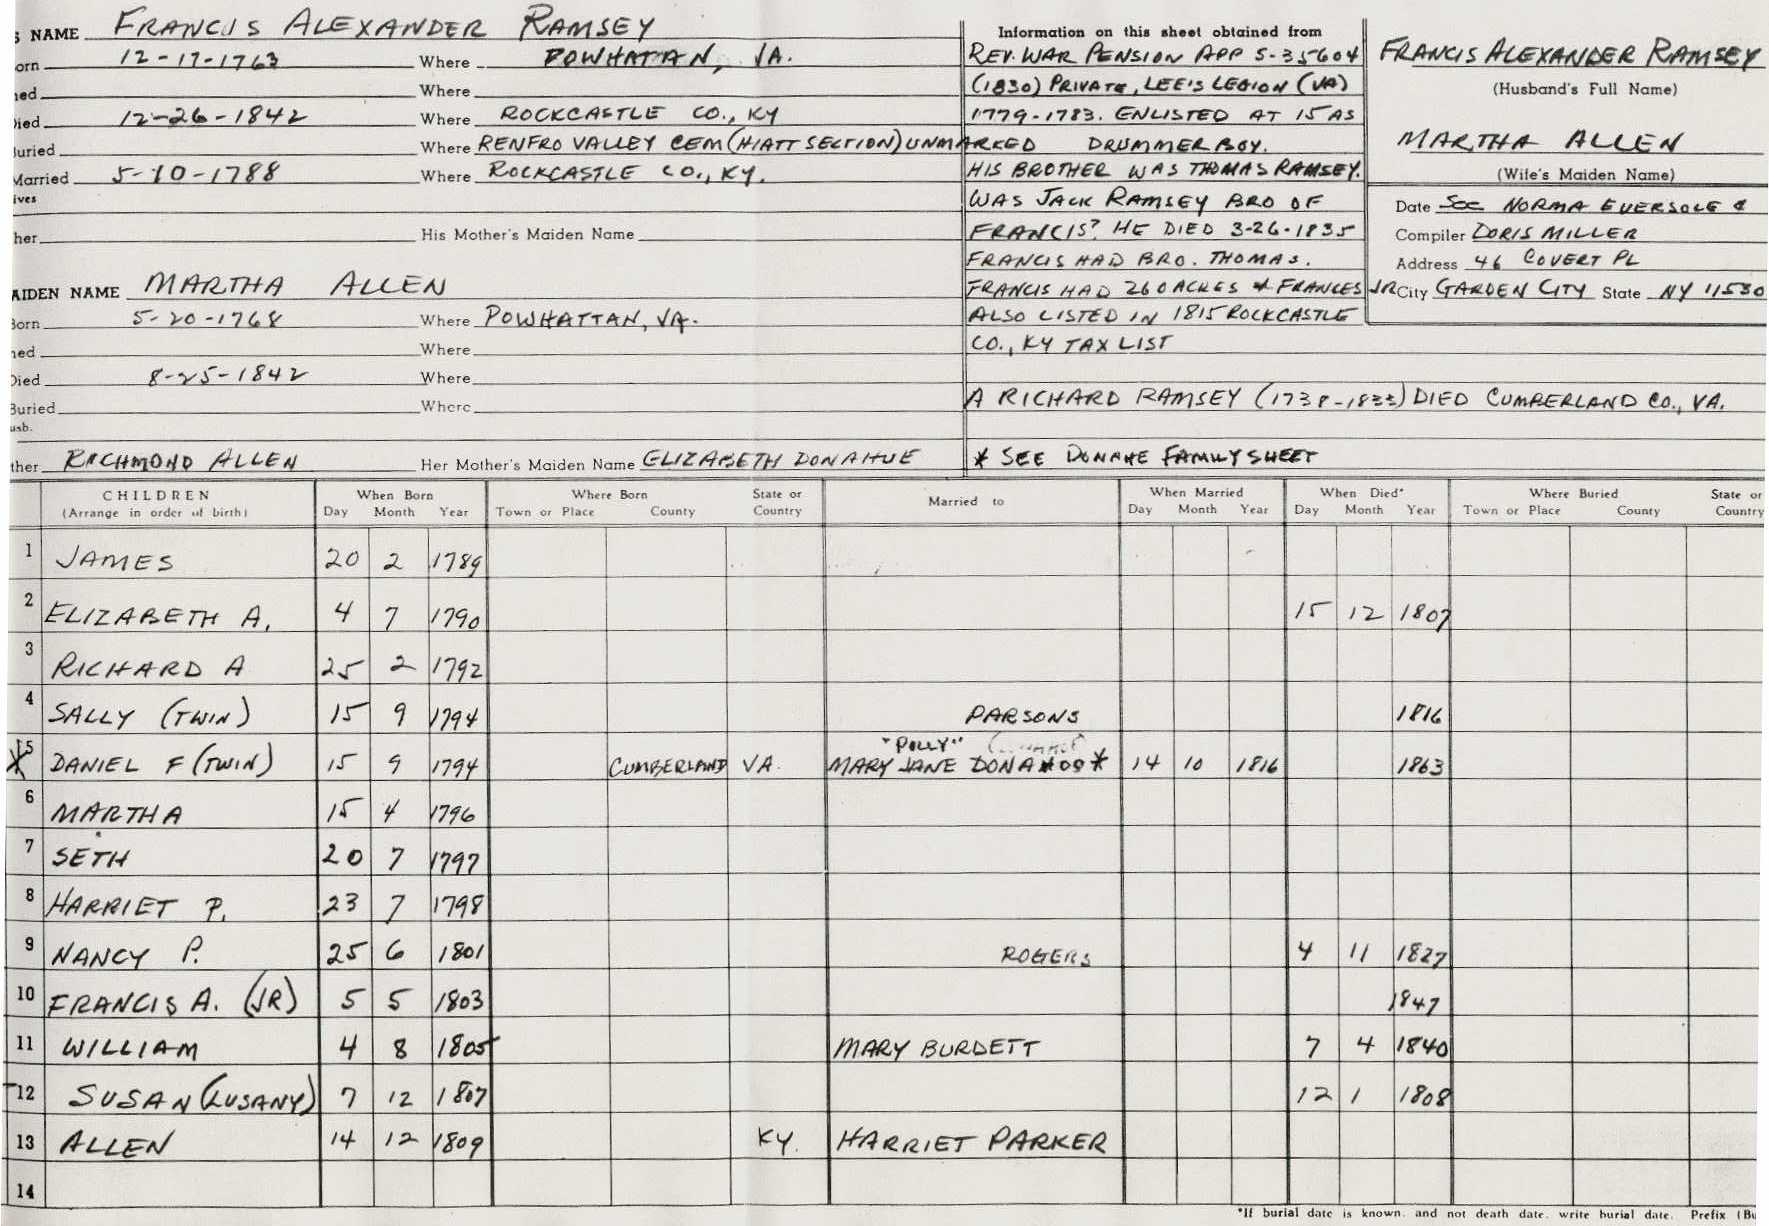 S NAME FRANCIS ALEXANDER RAMSEY
orn 12-17-1763 Where POWHATTAN, VA.
ned Where
Died 12-26-1842 Where ROCKCASTLE CO., KY
Buried Where RENFRO VALLEY CEM (HIATT SECTION) UNMARKED
Married 5-10-1788 Where ROCKCASTLE CO., KY.
ives
her His Mother's Maiden Name
AIDEN NAME MARTHA ALLEN
Born 5-20-1768 Where POWHATTAN, VA.
ned Where
Died 8-25-1842 Where
Buried Where
usb.
ther RICHMOND ALLEN Her Mother's Maiden Name ELIZABETH DONAHUE
Information on this sheet obtained from
REV. WAR PENSION APP S-35604
(1830) PRIVATE, LEE'S LEGION (VA)
1779-1783. ENLISTED AT 15 AS
DRUMMER BOY.
HIS BROTHER WAS THOMAS RAMSEY.
WAS JACK RAMSEY BRO OF
FRANCIS? HE DIED 3-26-1835
FRANCIS HAD BRO. THOMAS.
FRANCIS HAD 260 ACRES & FRANCES JR
ALSO LISTED IN 1815 ROCKCASTLE
CO., KY TAX LIST
A RICHARD RAMSEY (1738-1833) DIED CUMBERLAND CO., VA.
* SEE DONAHE FAMILY SHEET
FRANCIS ALEXANDER RAMSEY
(Husband's Full Name)
MARTHA ALLEN
(Wife's Maiden Name)
Date SOC NORMA EVERSOLE &
Compiler DORIS MILLER
Address 46 COVERT PL
City GARDEN CITY State NY 11530
CHILDREN When Born Where Born State or Married to When Married When Died* Where Buried State or
(Arrange in order of birth) Day Month Year Town or Place County Country Day Month Year Day Month Year Town or Place County Country
1 JAMES 20 2 1789
2 ELIZABETH A. 4 7 1790 15 12 1807
3 RICHARD A 25 2 1792
4 SALLY (TWIN) 15 9 1794 PARSONS 1816
"POLLY"
* 5 DANIEL F (TWIN) 15 9 1794 CUMBERLAND VA. MARY JANE * 14 10 1816 1863
6 MARTHA 15 4 1796
7 SETH 20 7 1797
8 HARRIET P. 23 7 1798
9 NANCY P. 25 6 1801 ROGERS 4 11 1827
10 FRANCIS A. (JR) 5 5 1803 1847
11 WILLIAM 4 8 1805 MARY BURDETT 7 4 1840
12 SUSAN (LUSANY) 7 12 1807 12 1 1808
13 ALLEN 14 12 1809 KY. HARRIET PARKER
14
*If burial date is known, and not death date, write burial date. Prefix (Bu